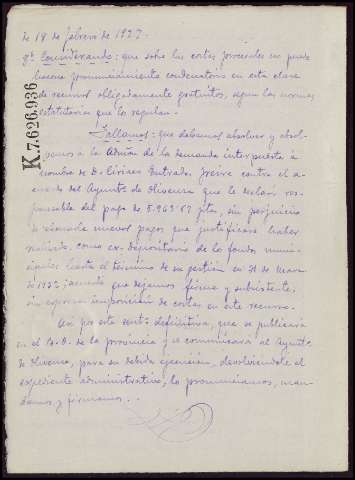 de 18 de febrero de 1927.
8º Considerando: que sobre las costas procesales no puede
hacerse pronunciamiento condenatorio en esta clase
de recursos obligadamente gratuitos, segun las normas
estatutarias que lo regulan.
Fallamos: que debemos absolver y absol-
vemos a la Admón de la demanda interpuesta á
nombre de D. Olivares Freire contra el a-
cuerdo del Ayunto de Oliveira que le declaró res-
ponsable del pago de 5.963'67 pts, sin perjuicio
de menores pagos que justificara haber
realizado, como ex-depositario de los fondos muni-
cipales hasta el término de su gestion en 31 de Mar-
zo 1932; acuerdo que dejamos firme y subsistente;
sin expresa imposicion de costas en este recurso.
Asi por esta sentª definitiva, que se publicará
en el B.O. de la provincia y se comunicará al Ayunto
de Oliveira, para su debida ejecución, devolviendole el
expediente administrativo, lo pronunciamos, man-
damos, y firmamos.
K.7.626.936